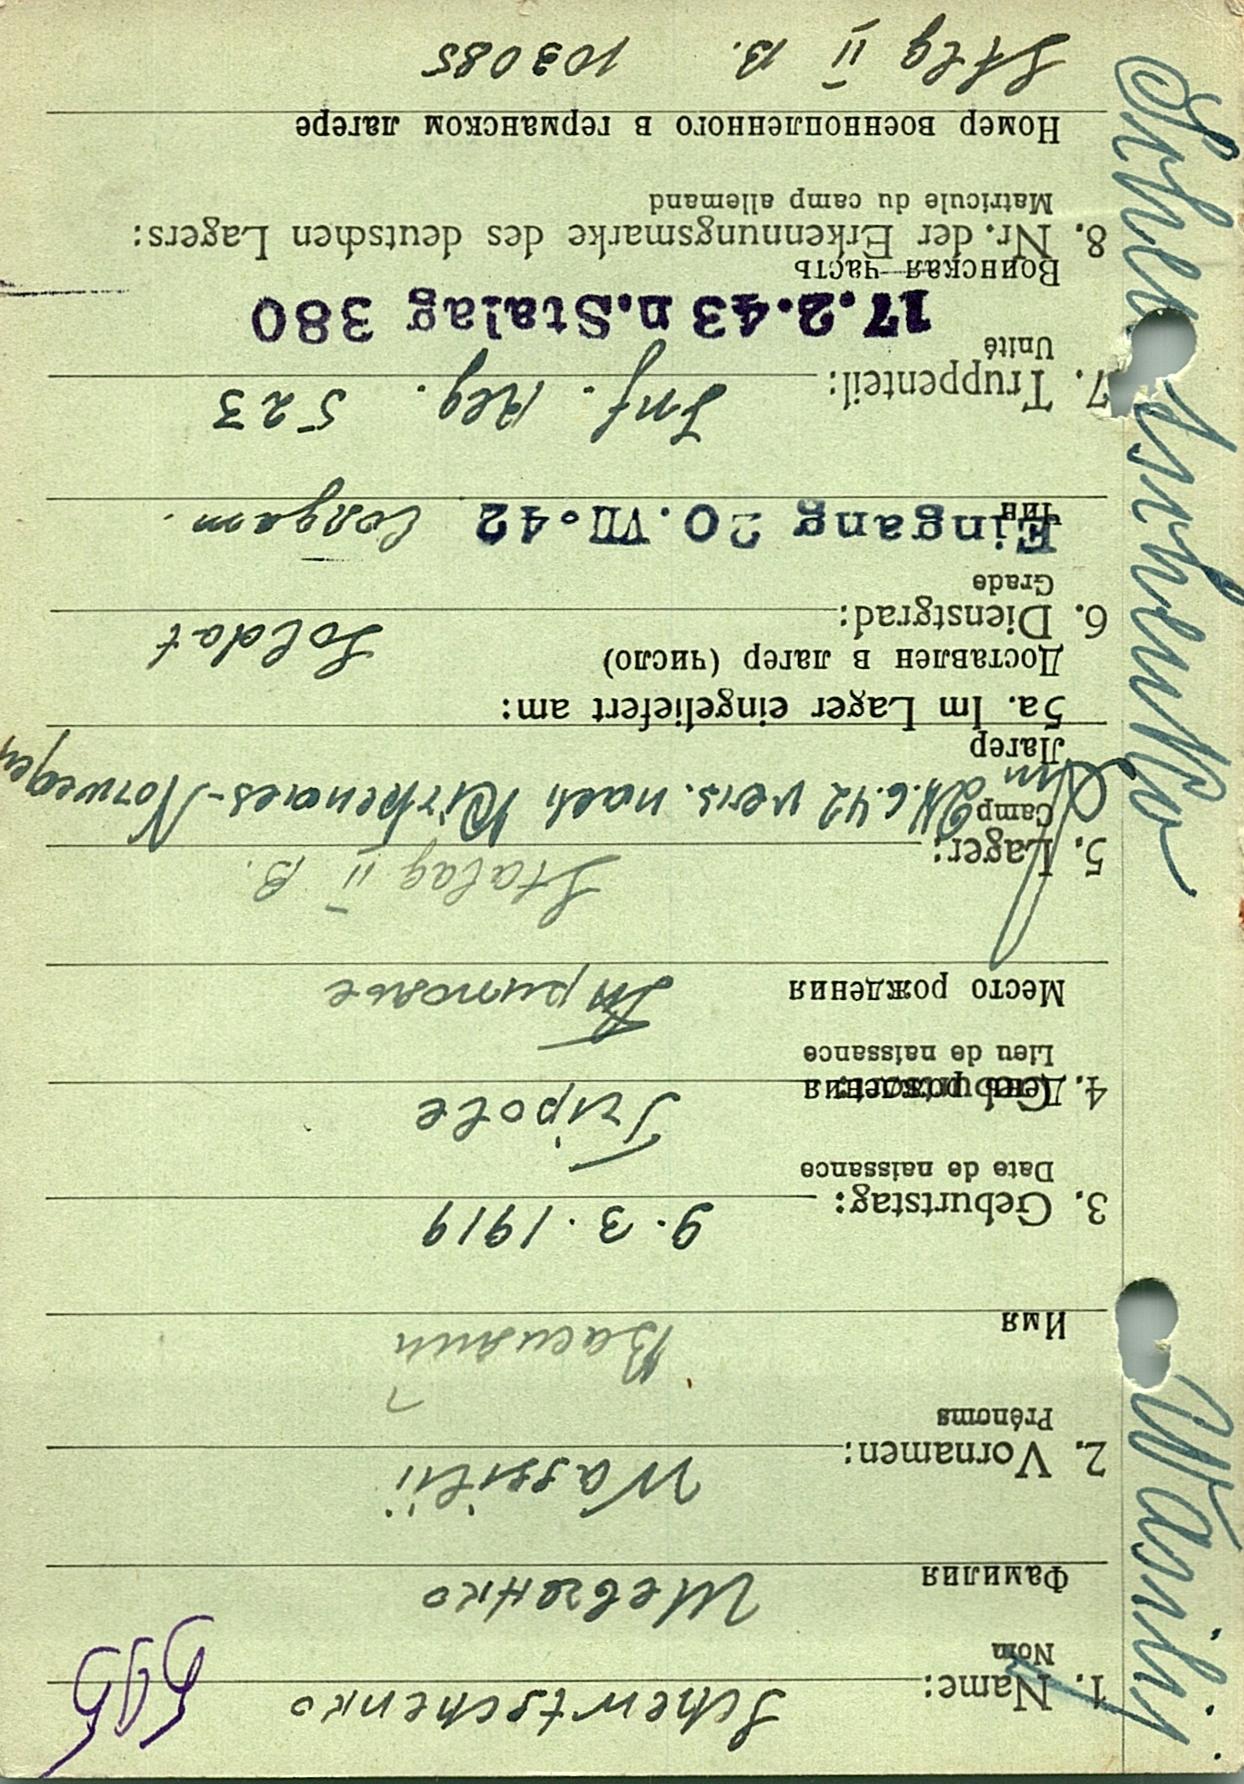 Schewtschenko Wasilij
595
1. Name: Schewtschenko
Nom
Фамилия Шевченко
2. Vornamen: Wassilii
Prénoms
Имя Василий
3. Geburtstag: 9.3.1919
Date de naissance
День рождения
4. Geburtsort: Tripole
Lieu de naissance
Место рождения Триполье
5. Lager: Stalag II B.
Camp
Лагер
Am 24.6.42 vers. nach Kirkenaes-Norwegen
5a. Im Lager eingeliefert am:
Доставлен в лагер (число)
6. Dienstgrad: Soldat
Grade
Чин Солдат.
Eingang 20. VII. 42
7. Truppenteil: Inf. Reg. 523
Unité
17.2.43 n. Stalag 380
Воинская часть
8. Nr. der Erkennungsmarke des deutschen Lagers:
Matricule du camp allemand
Номер военнопленного в германском лагере
Stlg II B. 103085